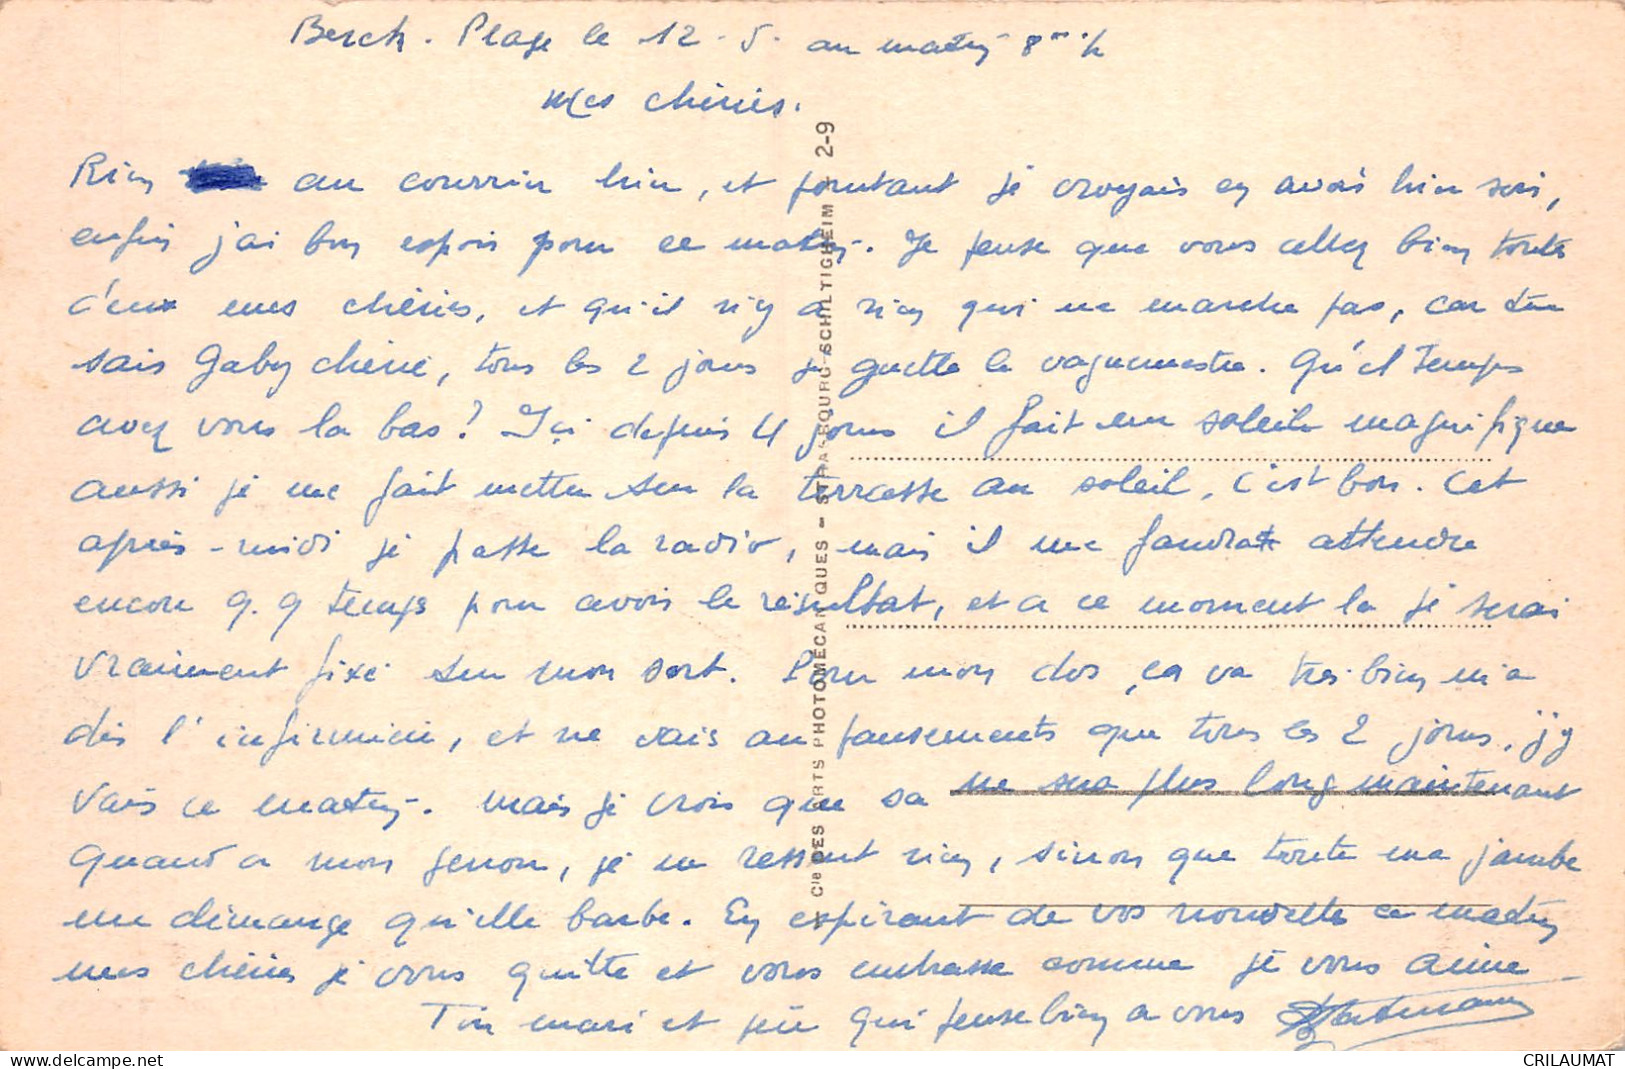 Berck-Plage le 12-5- au matin 8 h
Mes chéries.
Rien au courrier hier, et pourtant je croyais en avoir hier soir,
enfin j'ai bon espoir pour ce matin. Je pense que vous allez bien toute
deux mes chéries, et qu'il n'y a rien qui ne marche pas, car tu
sais Gaby chérie, tous les 2 jours je guette le vaguemestre. Qu'el temps
avez vous la bas? Ici depuis 4 jours il fait un soleil magnifique
aussi je me fait mettre sur la terrasse au soleil, c'est bon. Cet
après-midi je passe la radio, mais il me faudrat attendre
encore q.q temps pour avoir le résultat, et a ce moment la je serai
vraiment fixé sur mon sort. Pour mon dos, ça va très bien m'a
dis l'infirmière, et ne vais au pansements que tous les 2 jours, j'y
vais ce matin. Mais je crois que sa ne sera plus long maintenant
Quand a mon genou, je ne ressent rien, sinon que toute ma jambe
me démange qu'elle barbe. En espirant de vos nouvelle ce matin
mes chéries je vous quitte et vous embrasse comme je vous aime
Ton mari et père qui pense bien a vous
Cie DES ARTS PHOTOMÉCANIQUES - STRASBOURG-SCHILTIGHEIM - 2-9
CRILAUMAT